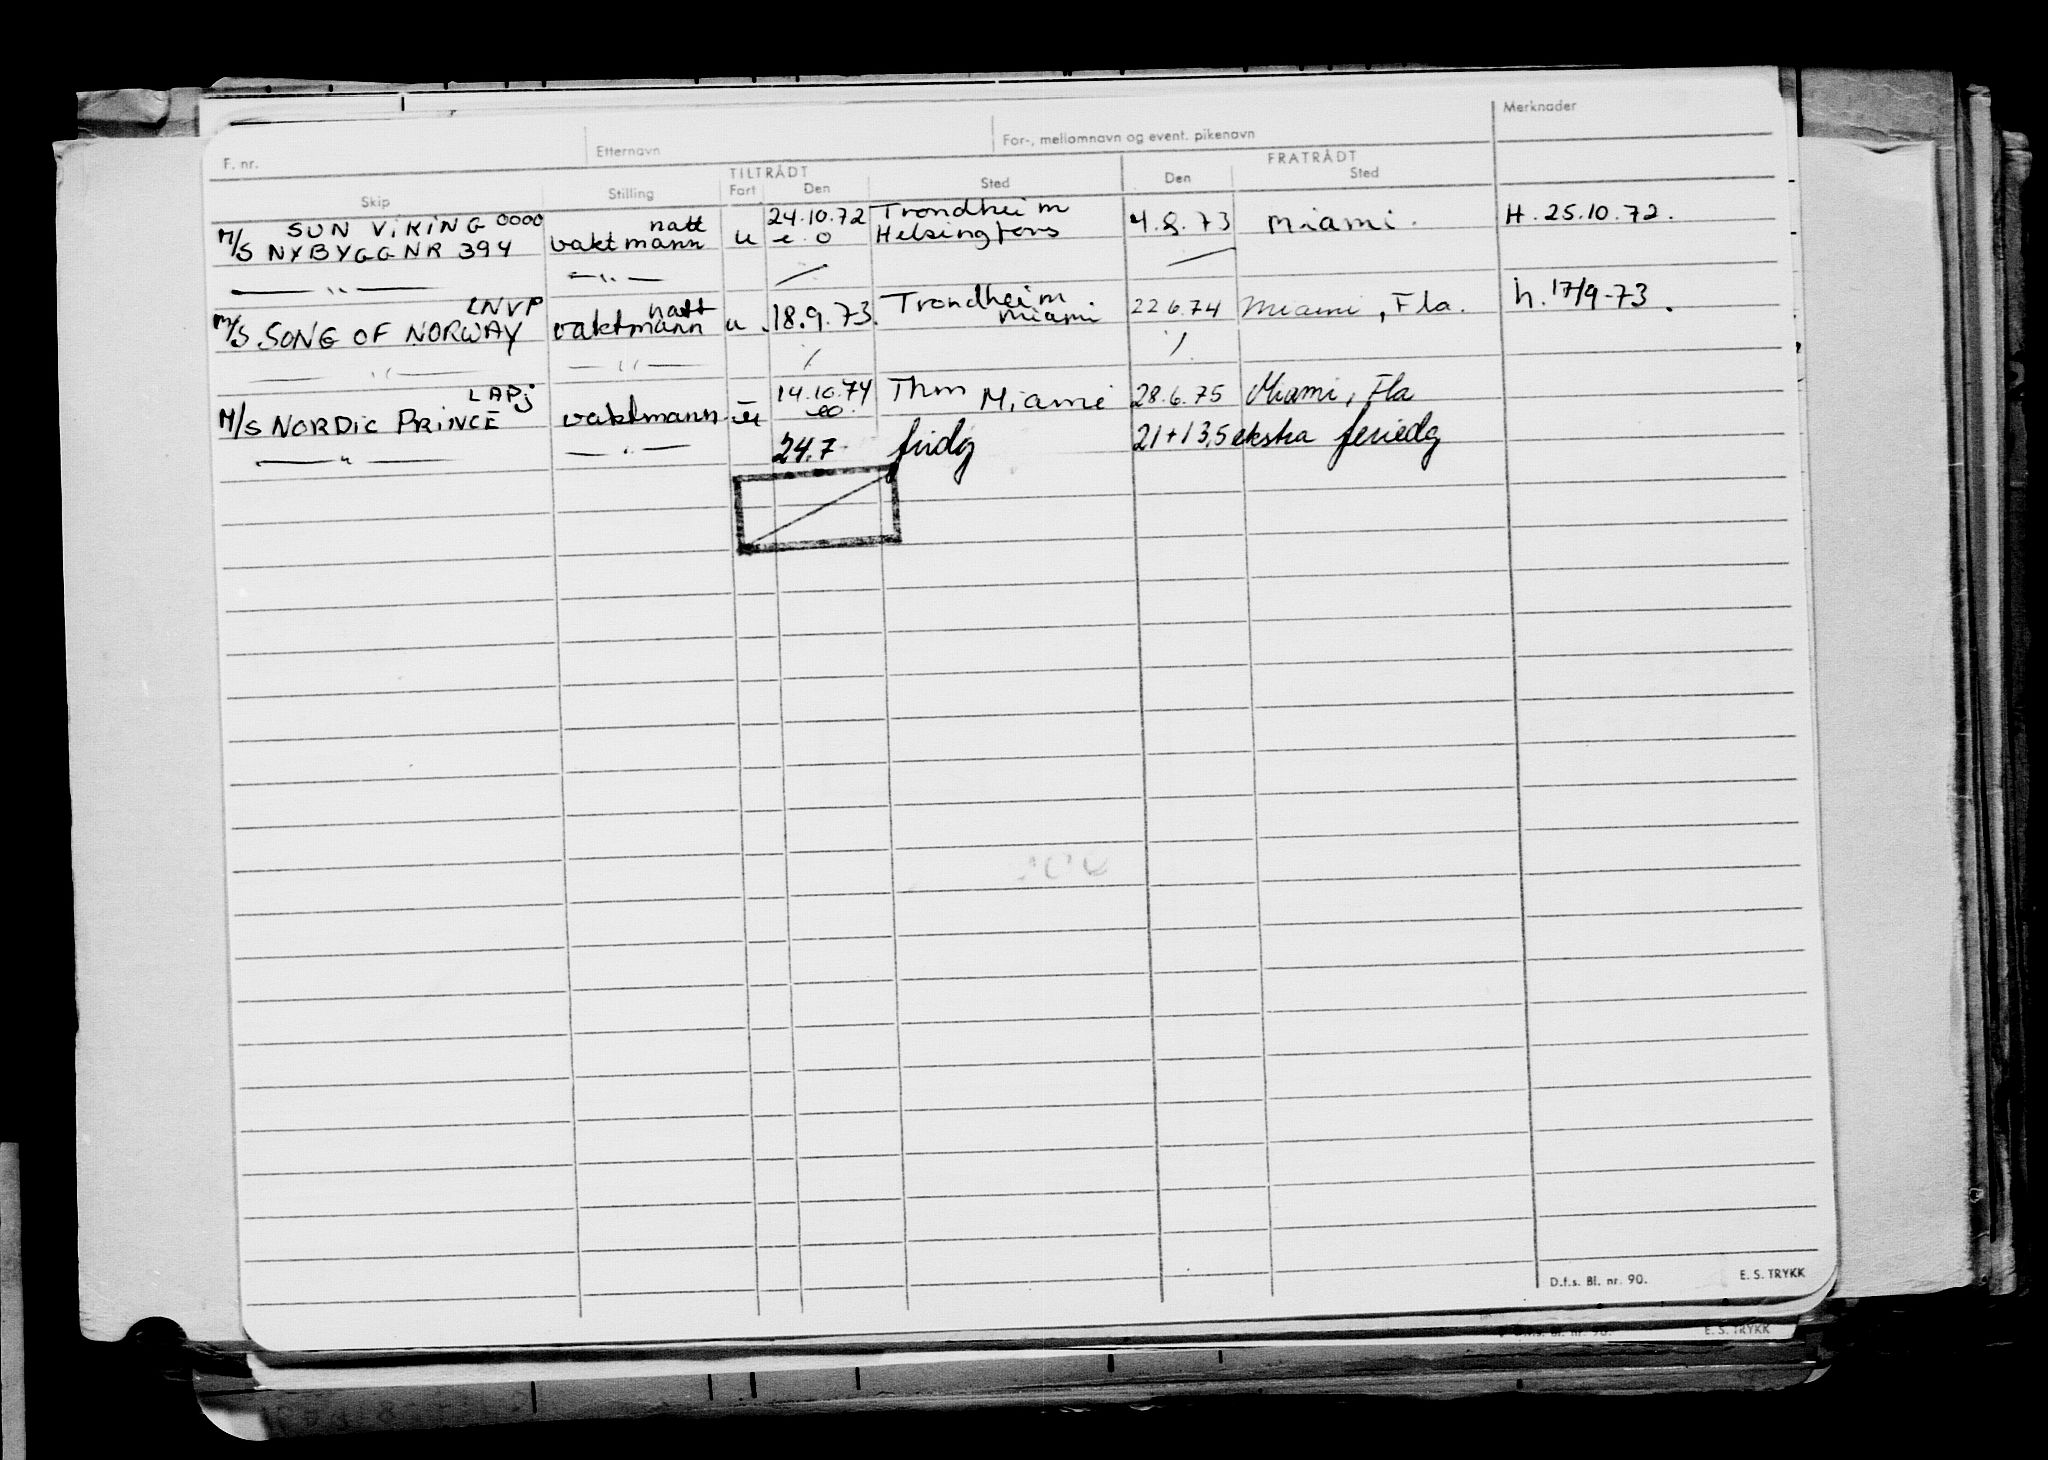 F. nr. Etternavn For-, mellomnavn og event. pikenavn Merknader
TILTRÅDT FRATRÅDT
Skip Stilling Fart Den Sted Den Sted
SUN VIKING 0000 natt 24.10.72 Trondheim
M/S NYBYGG NR 394 vaktmann u e.o Helsingfors 4.8.73 Miami. H. 25.10.72.
— " — — " — / /
LNVP natt Trondheim
M/S SONG OF NORWAY vaktmann u. 18.9.73. Miami. 22.6.74 Miami, Fla. h. 17/9-73.
— " — — " — / /
LAPJ 14.10.74 Thm
M/S NORDIC PRINCE vaktmann u eo. Miami 28.6.75 Miami, Fla
— " — — " — 24.7 fridg 21+13,5 ekstra feriedg
D.f.s. Bl. nr. 90. E. S. TRYKK
D.f.s. Bl. nr. 90. E. S. TRYKK